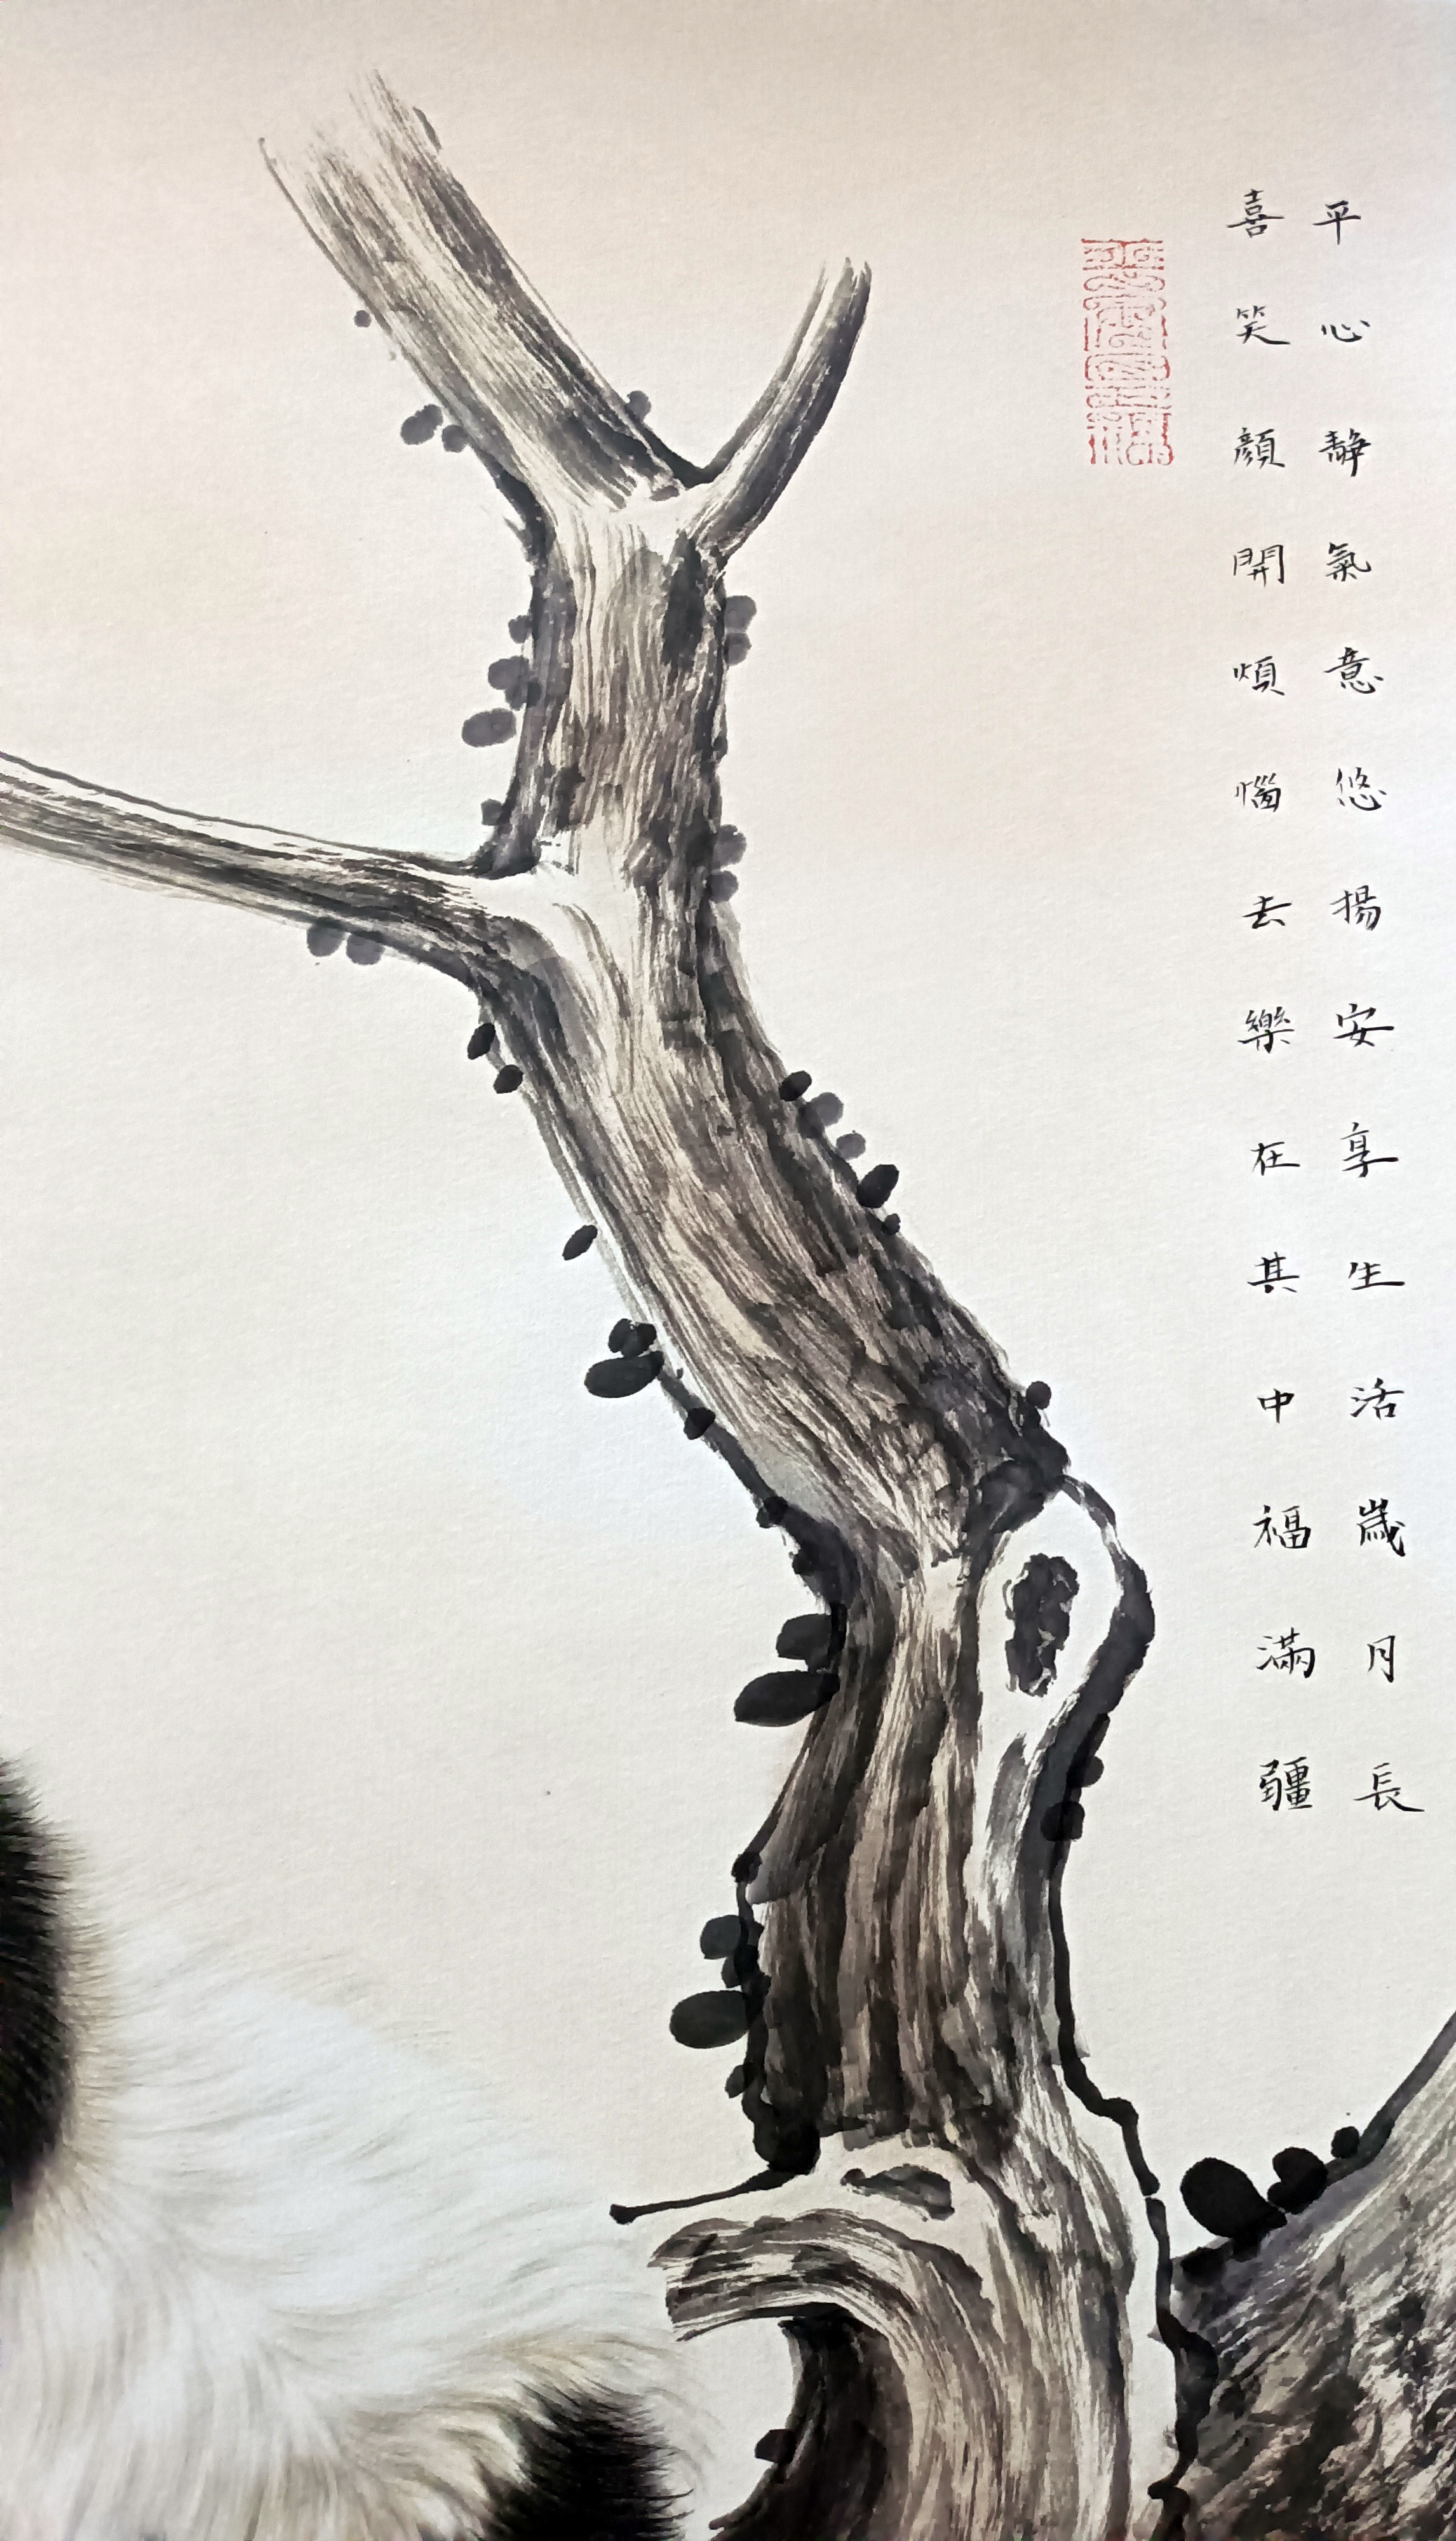 平心静氣意悠揚安享生活歲月長
喜笑顔開煩惱去樂在其中福滿疆